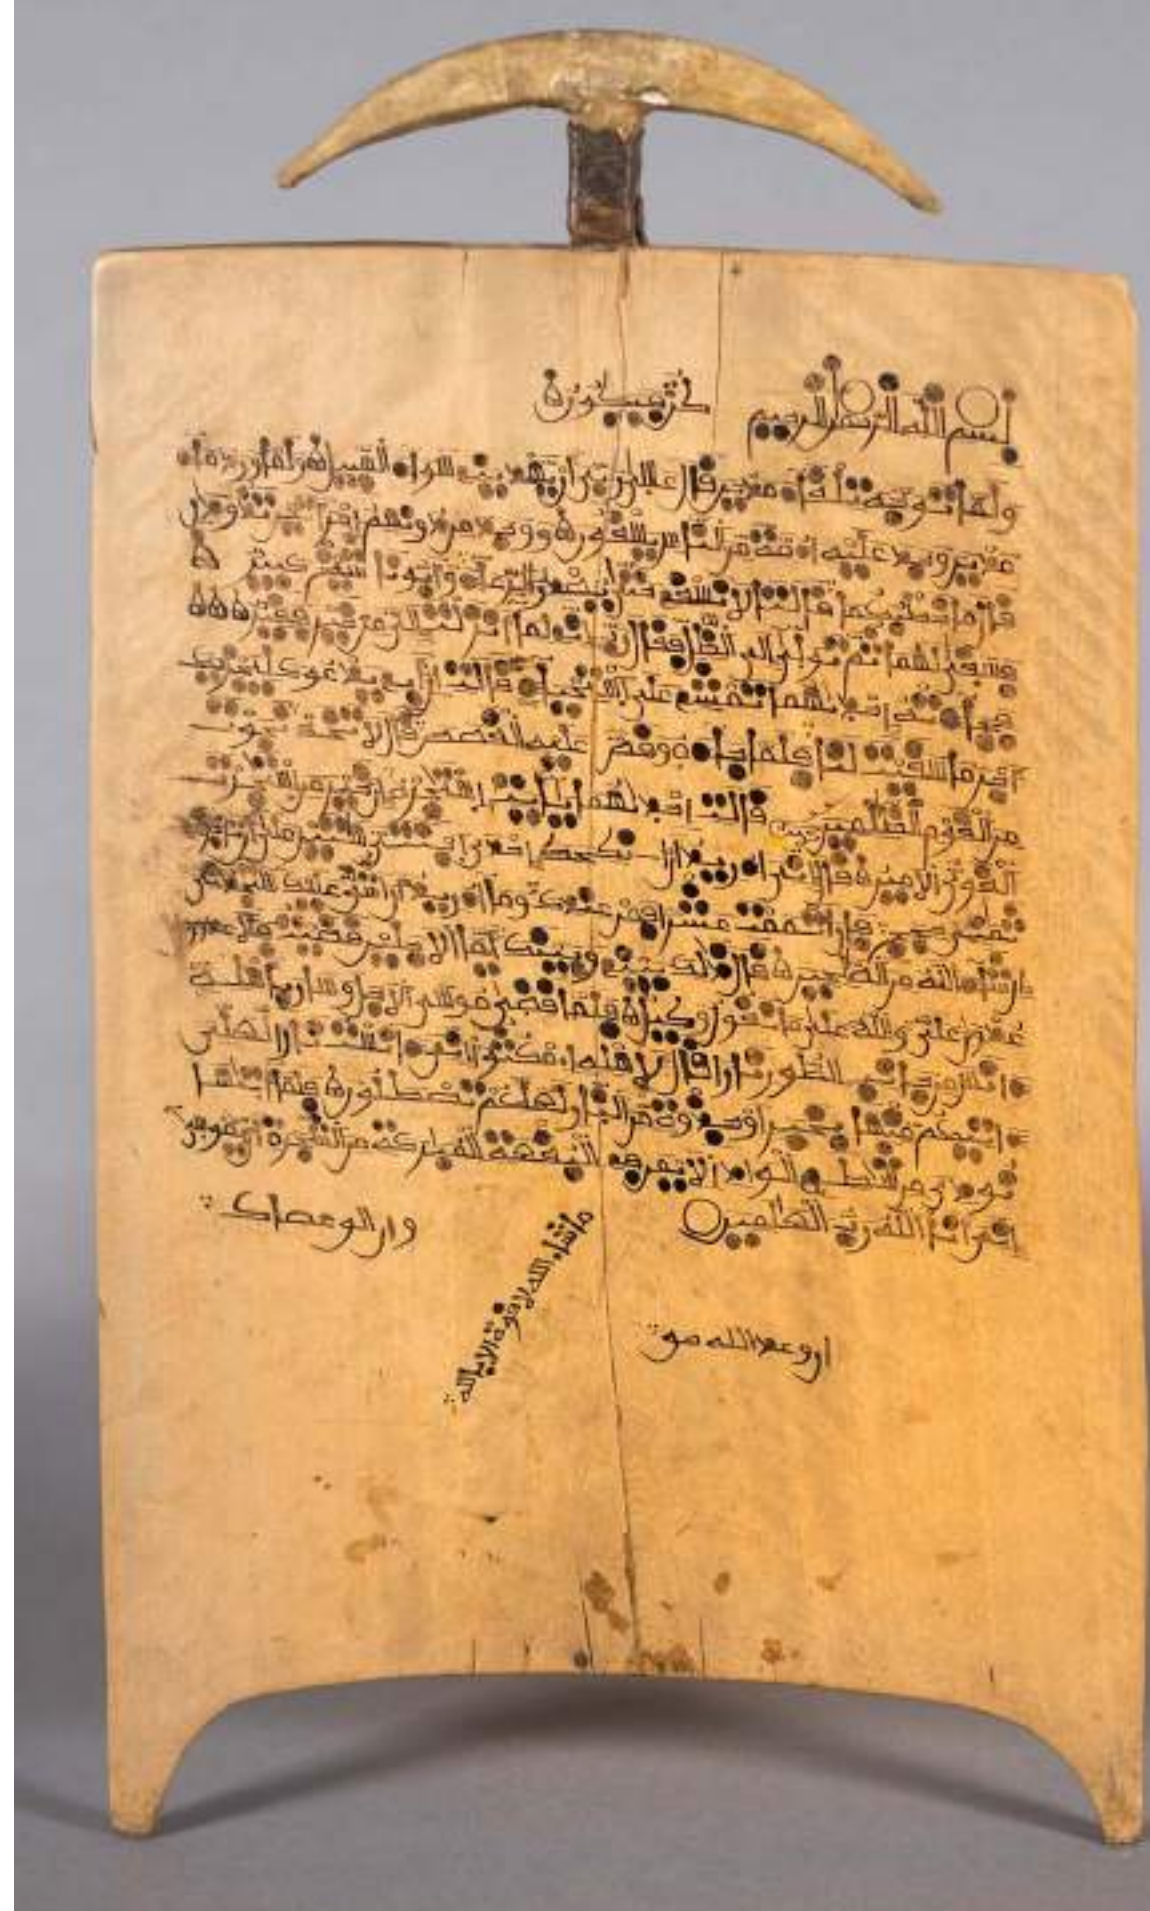 بسم الله الرحمن الرحيم
ولما توجه تلقاء مدين قال عسى ربي ان يهديني سواء السبيل ولما ورد ماء
مدين وجد عليه امة من الناس يسقون ووجد من دونهم امراتين تذودان
قال ما خطبكما قالتا لا نسقي حتى يصدر الرعاء وابونا شيخ كبير
فسقى لهما ثم تولى الى الظل فقال رب اني لما انزلت الي من خير فقير
فجاءته احديهما تمشي على استحياء قالت ان ابي يدعوك ليجزيك
اجر ما سقيت لنا فلما جاءه وقص عليه القصص قال لا تخف نجوت
من القوم الظلمين قالت احديهما يابت استجره ان خير من استجرت
القوي الامين قال اني اريد ان انكحك احدى ابنتي هتين على ان تاجرني
ثمني حجج فان اتممت عشرا فمن عندك وما اريد ان اشق عليك ستجدني
ان شاء الله من الصلحين قال ذلك بيني وبينك ايما الاجلين قضيت فلا عدون
علي والله على ما نقول وكيل فلما قضى موسى الاجل وسار باهله
ءانس من جانب الطور نارا قال لاهله امكثوا اني ءانست نارا لعلي
ءاتيكم منها بخبر او جذوة من النار لعلكم تصطلون فلما اتيها
نودي من شطئ الواد الايمن في البقعة المبركة من الشجرة ان يموسى
اني انا الله رب العلمين
وان الق عصاك
ما شاء الله لا قوة الا بالله